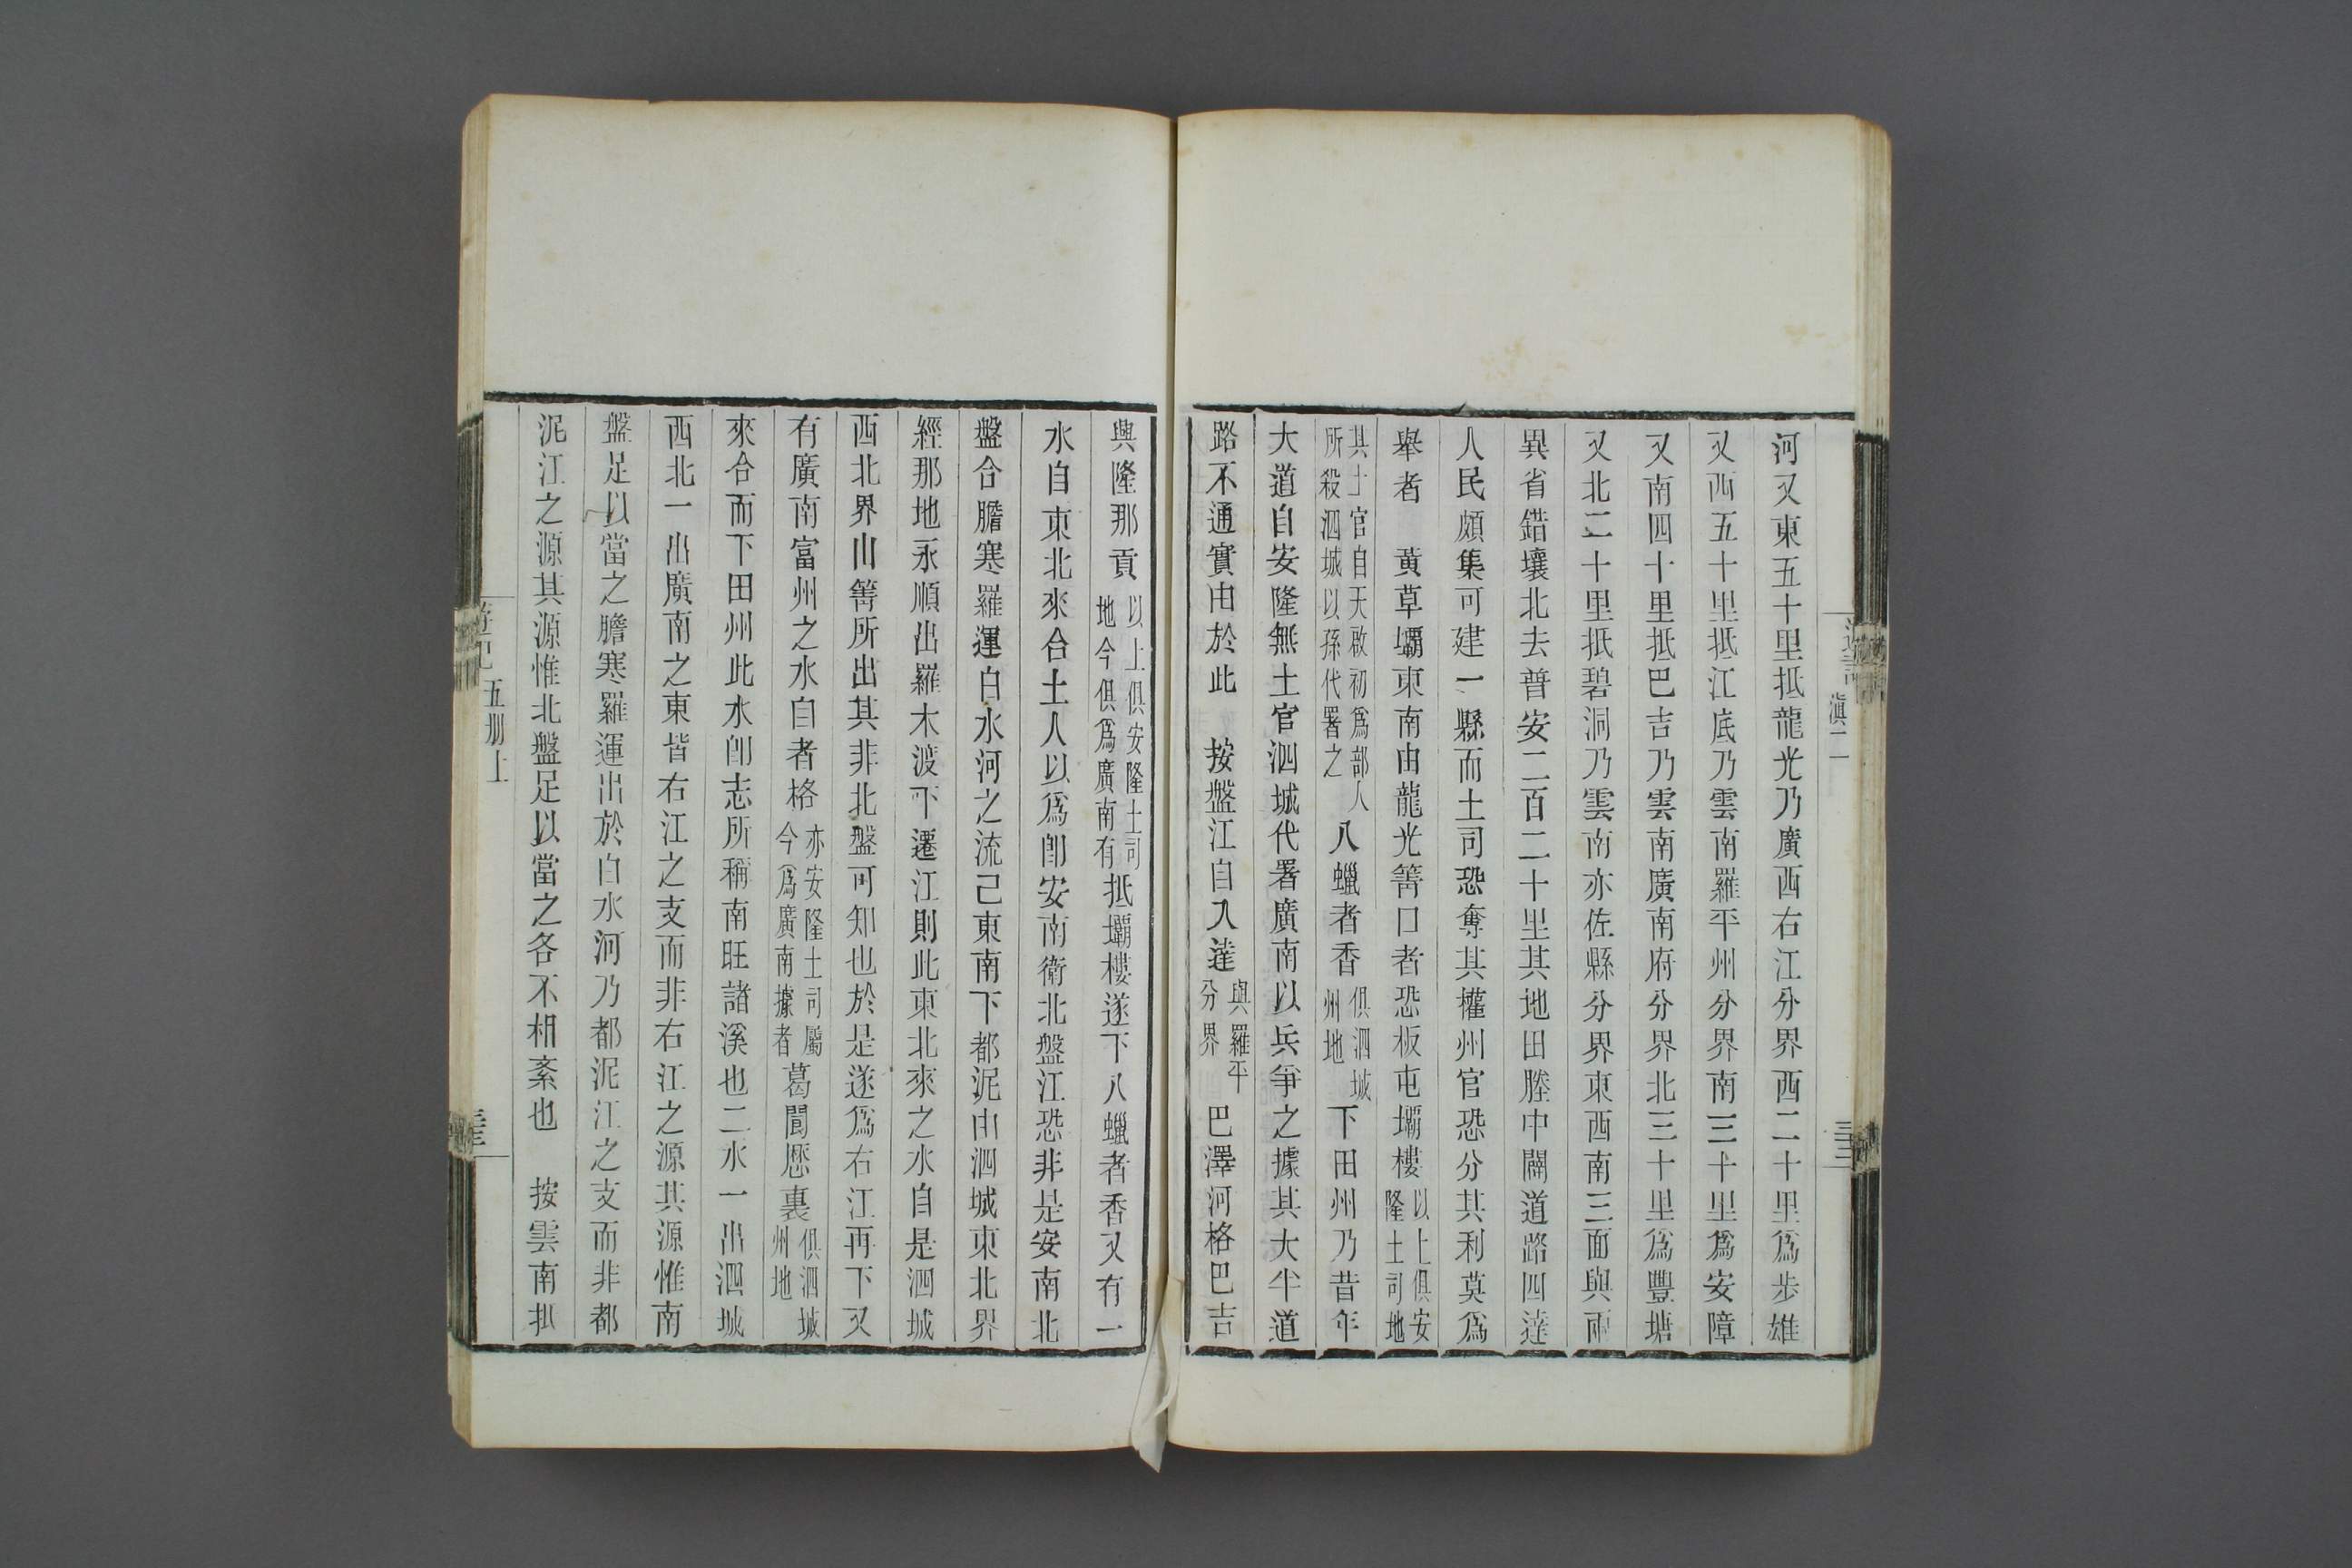 河又東五十里抵龍光乃廣西右江分界西二十里爲步雄
又西五十里抵江底乃雲南羅平州分界南三十里爲安障
又南四十里抵巴吉乃雲南廣南府分界北三十里爲豐塘
又北二十里抵碧洞乃雲南亦佐縣分界東西南三面與兩
異省錯壤北去普安二百二十里其地田塍中闢道路四達
人民頗集可建一縣而土司恐奪其權州官恐分其利莫爲
舉者　黃草壩東南由龍光箐口者恐板屯壩樓以上俱安隆土司地
其土官自天啟初爲部人所殺泗城以孫代署之八蠟者香俱泗城州地下田州乃昔年
大道自安隆無土官泗城代署廣南以兵爭之據其大半道
路不通實由於此　按盤江自入達與羅平分界巴澤河格巴吉
興隆那貢以上俱安隆土司地今俱爲廣南有抵壩樓遂下八蠟者香又有一
水自東北來合土人以爲卽安南衛北盤江恐非是安南北
盤合膽寒羅運白水河之流己東南下都泥由泗城東北界
經那地永順出羅木渡下遷江則此東北來之水自是泗城
西北界山箐所出其非北盤可知也於是遂爲右江再下又
有廣南富州之水自者格亦安隆土司屬今爲廣南據者葛閬厯裏俱泗城州地
來合而下田州此水卽志所稱南旺諸溪也二水一出泗城
西北一出廣南之東皆右江之支而非右江之源其源惟南
盤足以當之膽寒羅運出於白水河乃都泥江之支而非都
泥江之源其源惟北盤足以當之各不相紊也　按雲南抵
滇二
三三
五册上